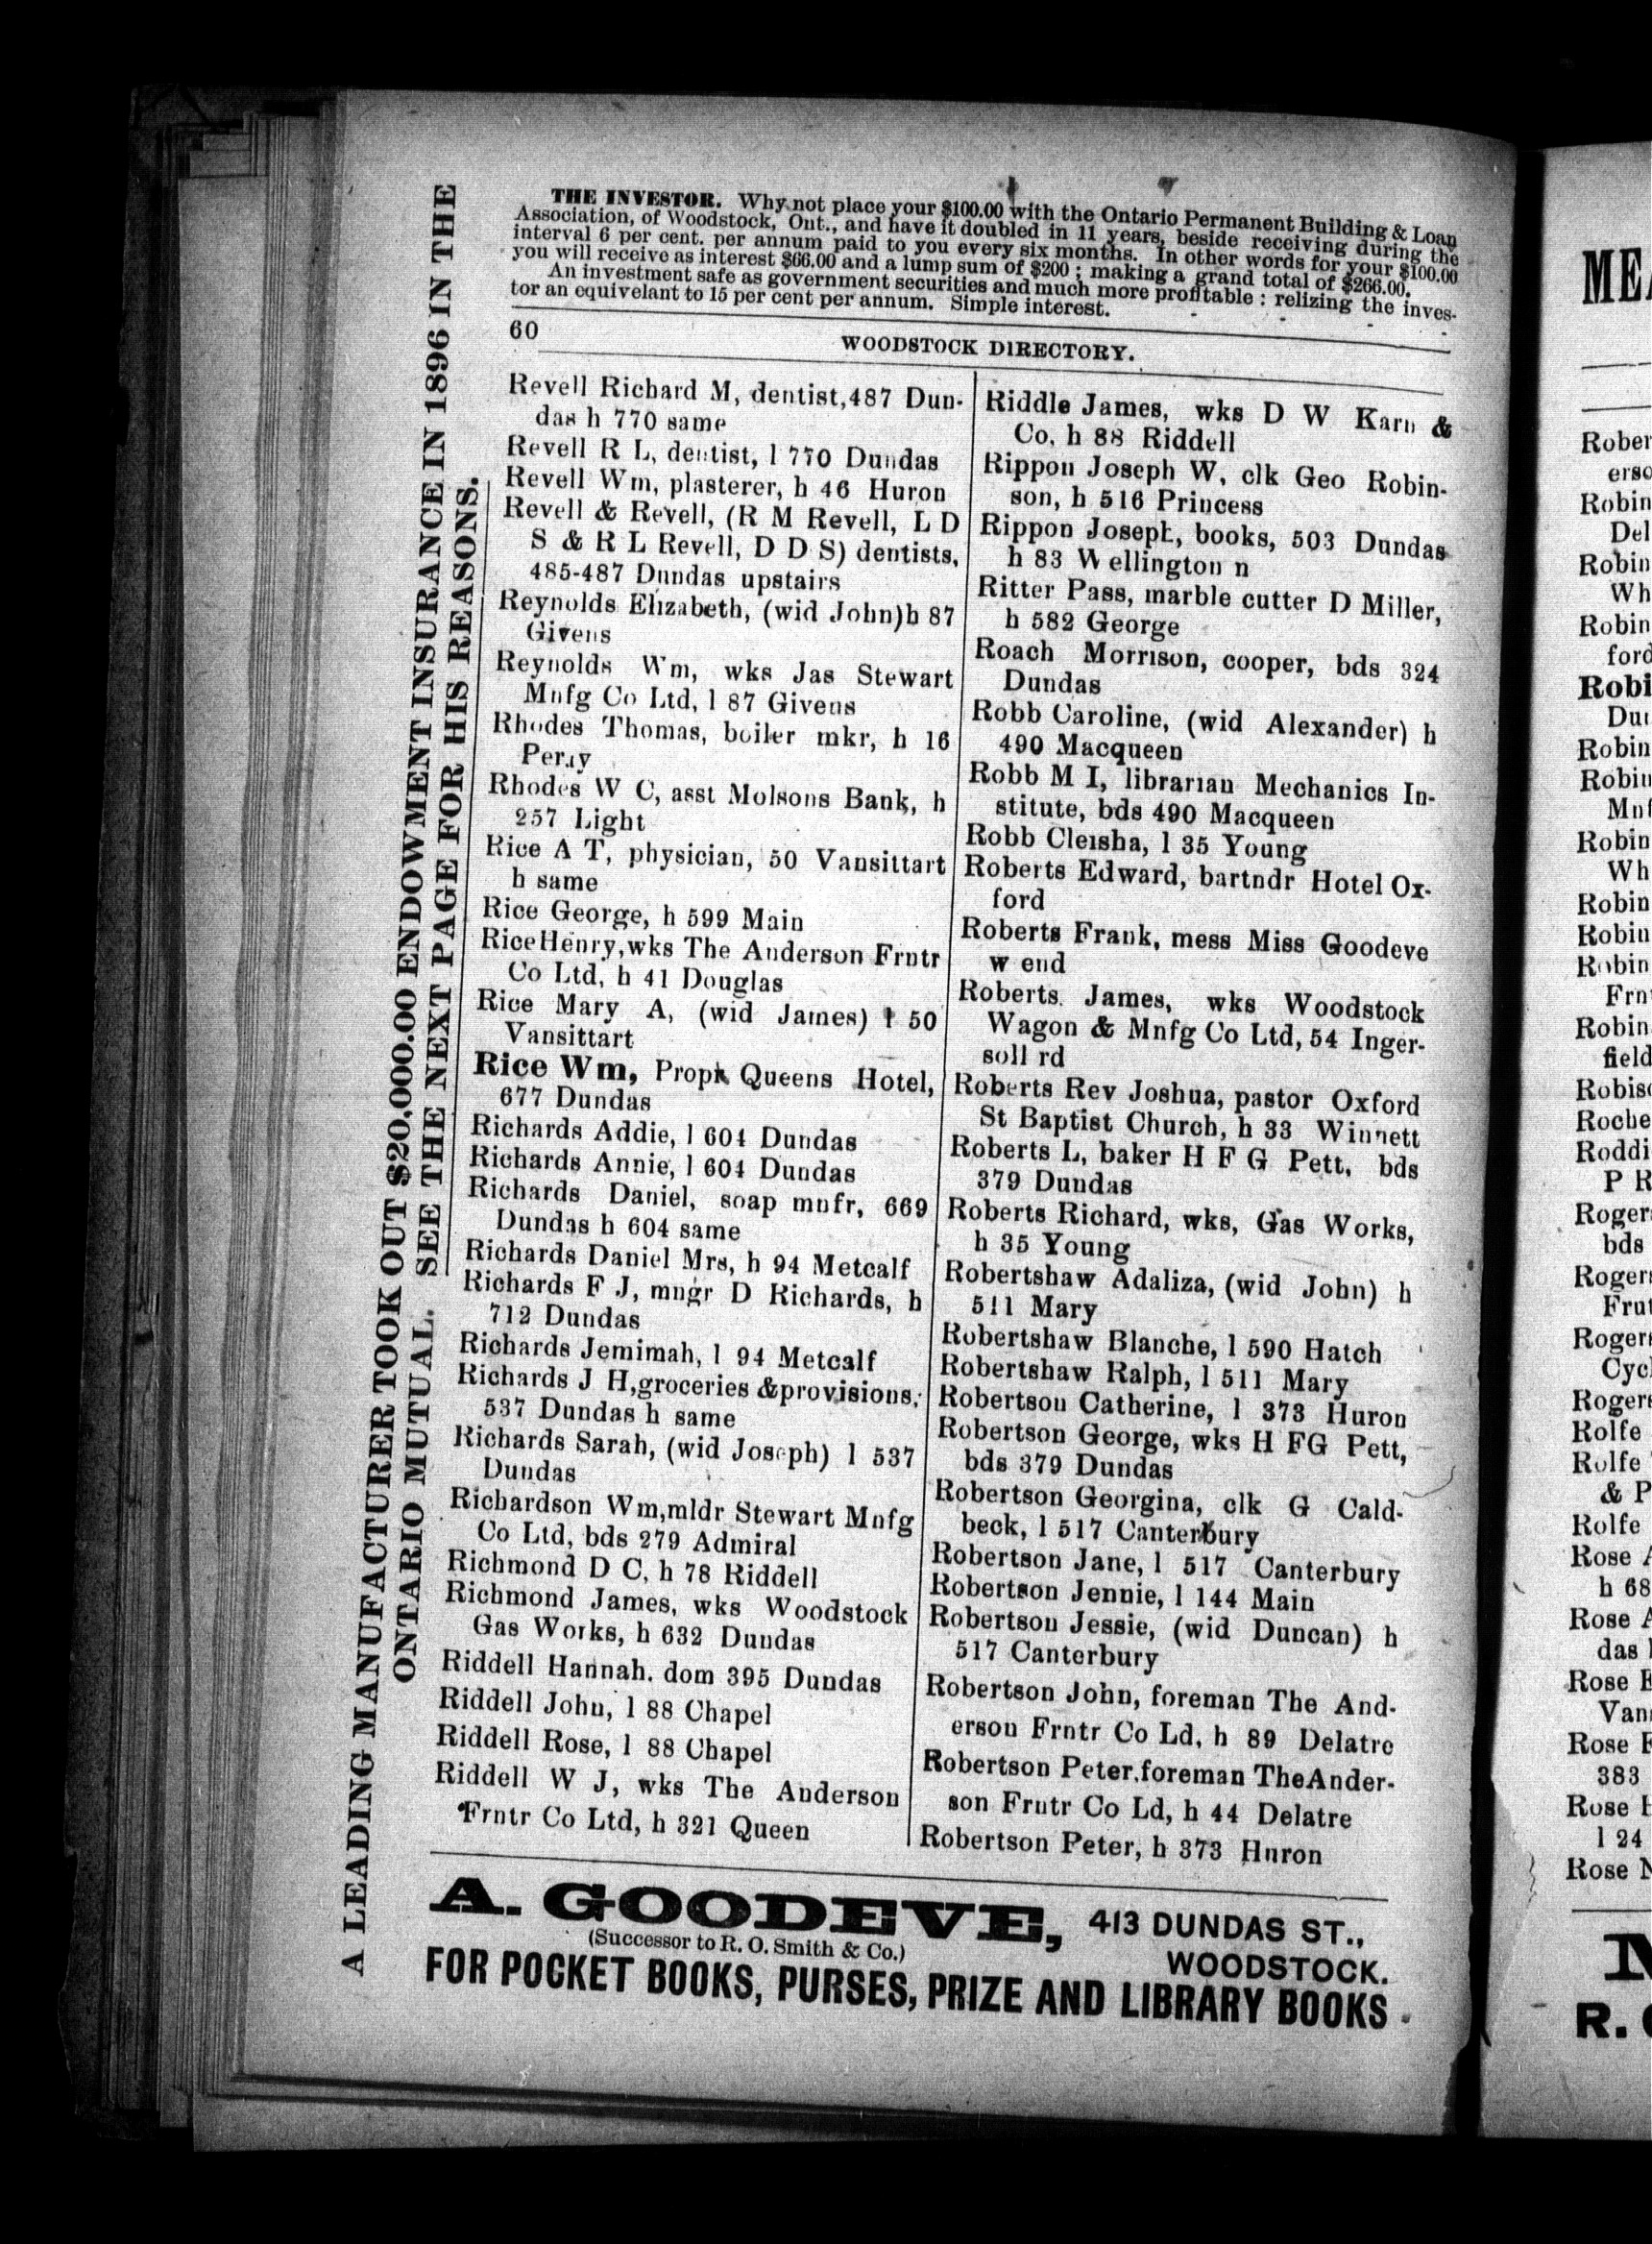 THE INVESTOR. Why not place your $100.00 with the Ontario Permanent Building & Loan
Association, of Woodstock, Ont., and have it doubled in 11 years, beside receiving during the
interval 6 per cent. per annum paid to you every six months. In other words for your $100.00
you will receive as interest $66.00 and a lump sum of $200 ; making a grand total of $266.00.
An investment safe as government securities and much more profitable : relizing the inves-
tor an equivelant to 15 per cent per annum. Simple interest.
60
WOODSTOCK DIRECTORY.
Revell Richard M, dentist,487 Dun-
das h 770 same
Revell R L, dentist, l 770 Dundas
Revell Wm, plasterer, h 46 Huron
Revell & Revell, (R M Revell, L D
S & R L Revell, D D S) dentists,
485-487 Dundas upstairs
Reynolds Elizabeth, (wid John)h 87
Givens
Reynolds Wm, wks Jas Stewart
Mnfg Co Ltd, l 87 Givens
Rhodes Thomas, boiler mkr, h 16
Perry
Rhodes W C, asst Molsons Bank, h
257 Light
Rice A T, physician, 50 Vansittart
h same
Rice George, h 599 Main
Rice Henry,wks The Anderson Frntr
Co Ltd, h 41 Douglas
Rice Mary A, (wid James) l 50
Vansittart
Rice Wm, Propr Queens Hotel,
677 Dundas
Richards Addie, l 604 Dundas
Richards Annie, l 604 Dundas
Richards Daniel, soap mnfr, 669
Dundas h 604 same
Richards Daniel Mrs, h 94 Metcalf
Richards F J, mngr D Richards, h
712 Dundas
Richards Jemimah, l 94 Metcalf
Richards J H,groceries &provisions,
537 Dundas h same
Richards Sarah, (wid Joseph) l 537
Dundas
Richardson Wm,mldr Stewart Mnfg
Co Ltd, bds 279 Admiral
Richmond D C, h 78 Riddell
Richmond James, wks Woodstock
Gas Works, h 632 Dundas
Riddell Hannah. dom 395 Dundas
Riddell John, l 88 Chapel
Riddell Rose, l 88 Chapel
Riddell W J, wks The Anderson
Frntr Co Ltd, h 321 Queen
Riddle James, wks D W Karn &
Co, h 88 Riddell
Rippon Joseph W, clk Geo Robin-
son, h 516 Princess
Rippon Joseph, books, 503 Dundas
h 83 Wellington n
Ritter Pass, marble cutter D Miller,
h 582 George
Roach Morrison, cooper, bds 324
Dundas
Robb Caroline, (wid Alexander) h
490 Macqueen
Robb M I, librarian Mechanics In-
stitute, bds 490 Macqueen
Robb Cleisha, l 35 Young
Roberts Edward, bartndr Hotel Ox-
ford
Roberts Frank, mess Miss Goodeve
w end
Roberts. James, wks Woodstock
Wagon & Mnfg Co Ltd, 54 Inger-
soll rd
Roberts Rev Joshua, pastor Oxford
St Baptist Church, h 33 Winnett
Roberts L, baker H F G Pett, bds
379 Dundas
Roberts Richard, wks, Gas Works,
h 35 Young
Robertshaw Adaliza, (wid John) h
511 Mary
Robertshaw Blanche, l 590 Hatch
Robertshaw Ralph, l 511 Mary
Robertson Catherine, l 373 Huron
Robertson George, wks H FG Pett,
bds 379 Dundas
Robertson Georgina, clk G Cald-
beck, l 517 Canterbury
Robertson Jane, l 517 Canterbury
Robertson Jennie, l 144 Main
Robertson Jessie, (wid Duncan) h
517 Canterbury
Robertson John, foreman The And-
erson Frntr Co Ld, h 89 Delatre
Robertson Peter,foreman TheAnder-
son Frntr Co Ld, h 44 Delatre
Robertson Peter, h 373 Huron
A. GOODEVE, 413 DUNDAS ST.,
(Successor to R. O. Smith & Co.)
WOODSTOCK.
FOR POCKET BOOKS, PURSES, PRIZE AND LIBRARY BOOKS
A LEADING MANUFACTURER TOOK OUT $20,000.00 ENDOWMENT INSURANCE IN 1896 IN THE
ONTARIO MUTUAL. SEE THE NEXT PAGE FOR HIS REASONS.
Robin
Del
Robin
Wh
Robin
ford
Robi
Robin
Robin
Robin
Wh
Robin
Robin
Robin
Robin
field
Roddi
P R
bds
Rolfe
Rolfe
& P
Rolfe
Rose
h 68
Rose
das
Rose
Van
Rose
383
l 24
Rose